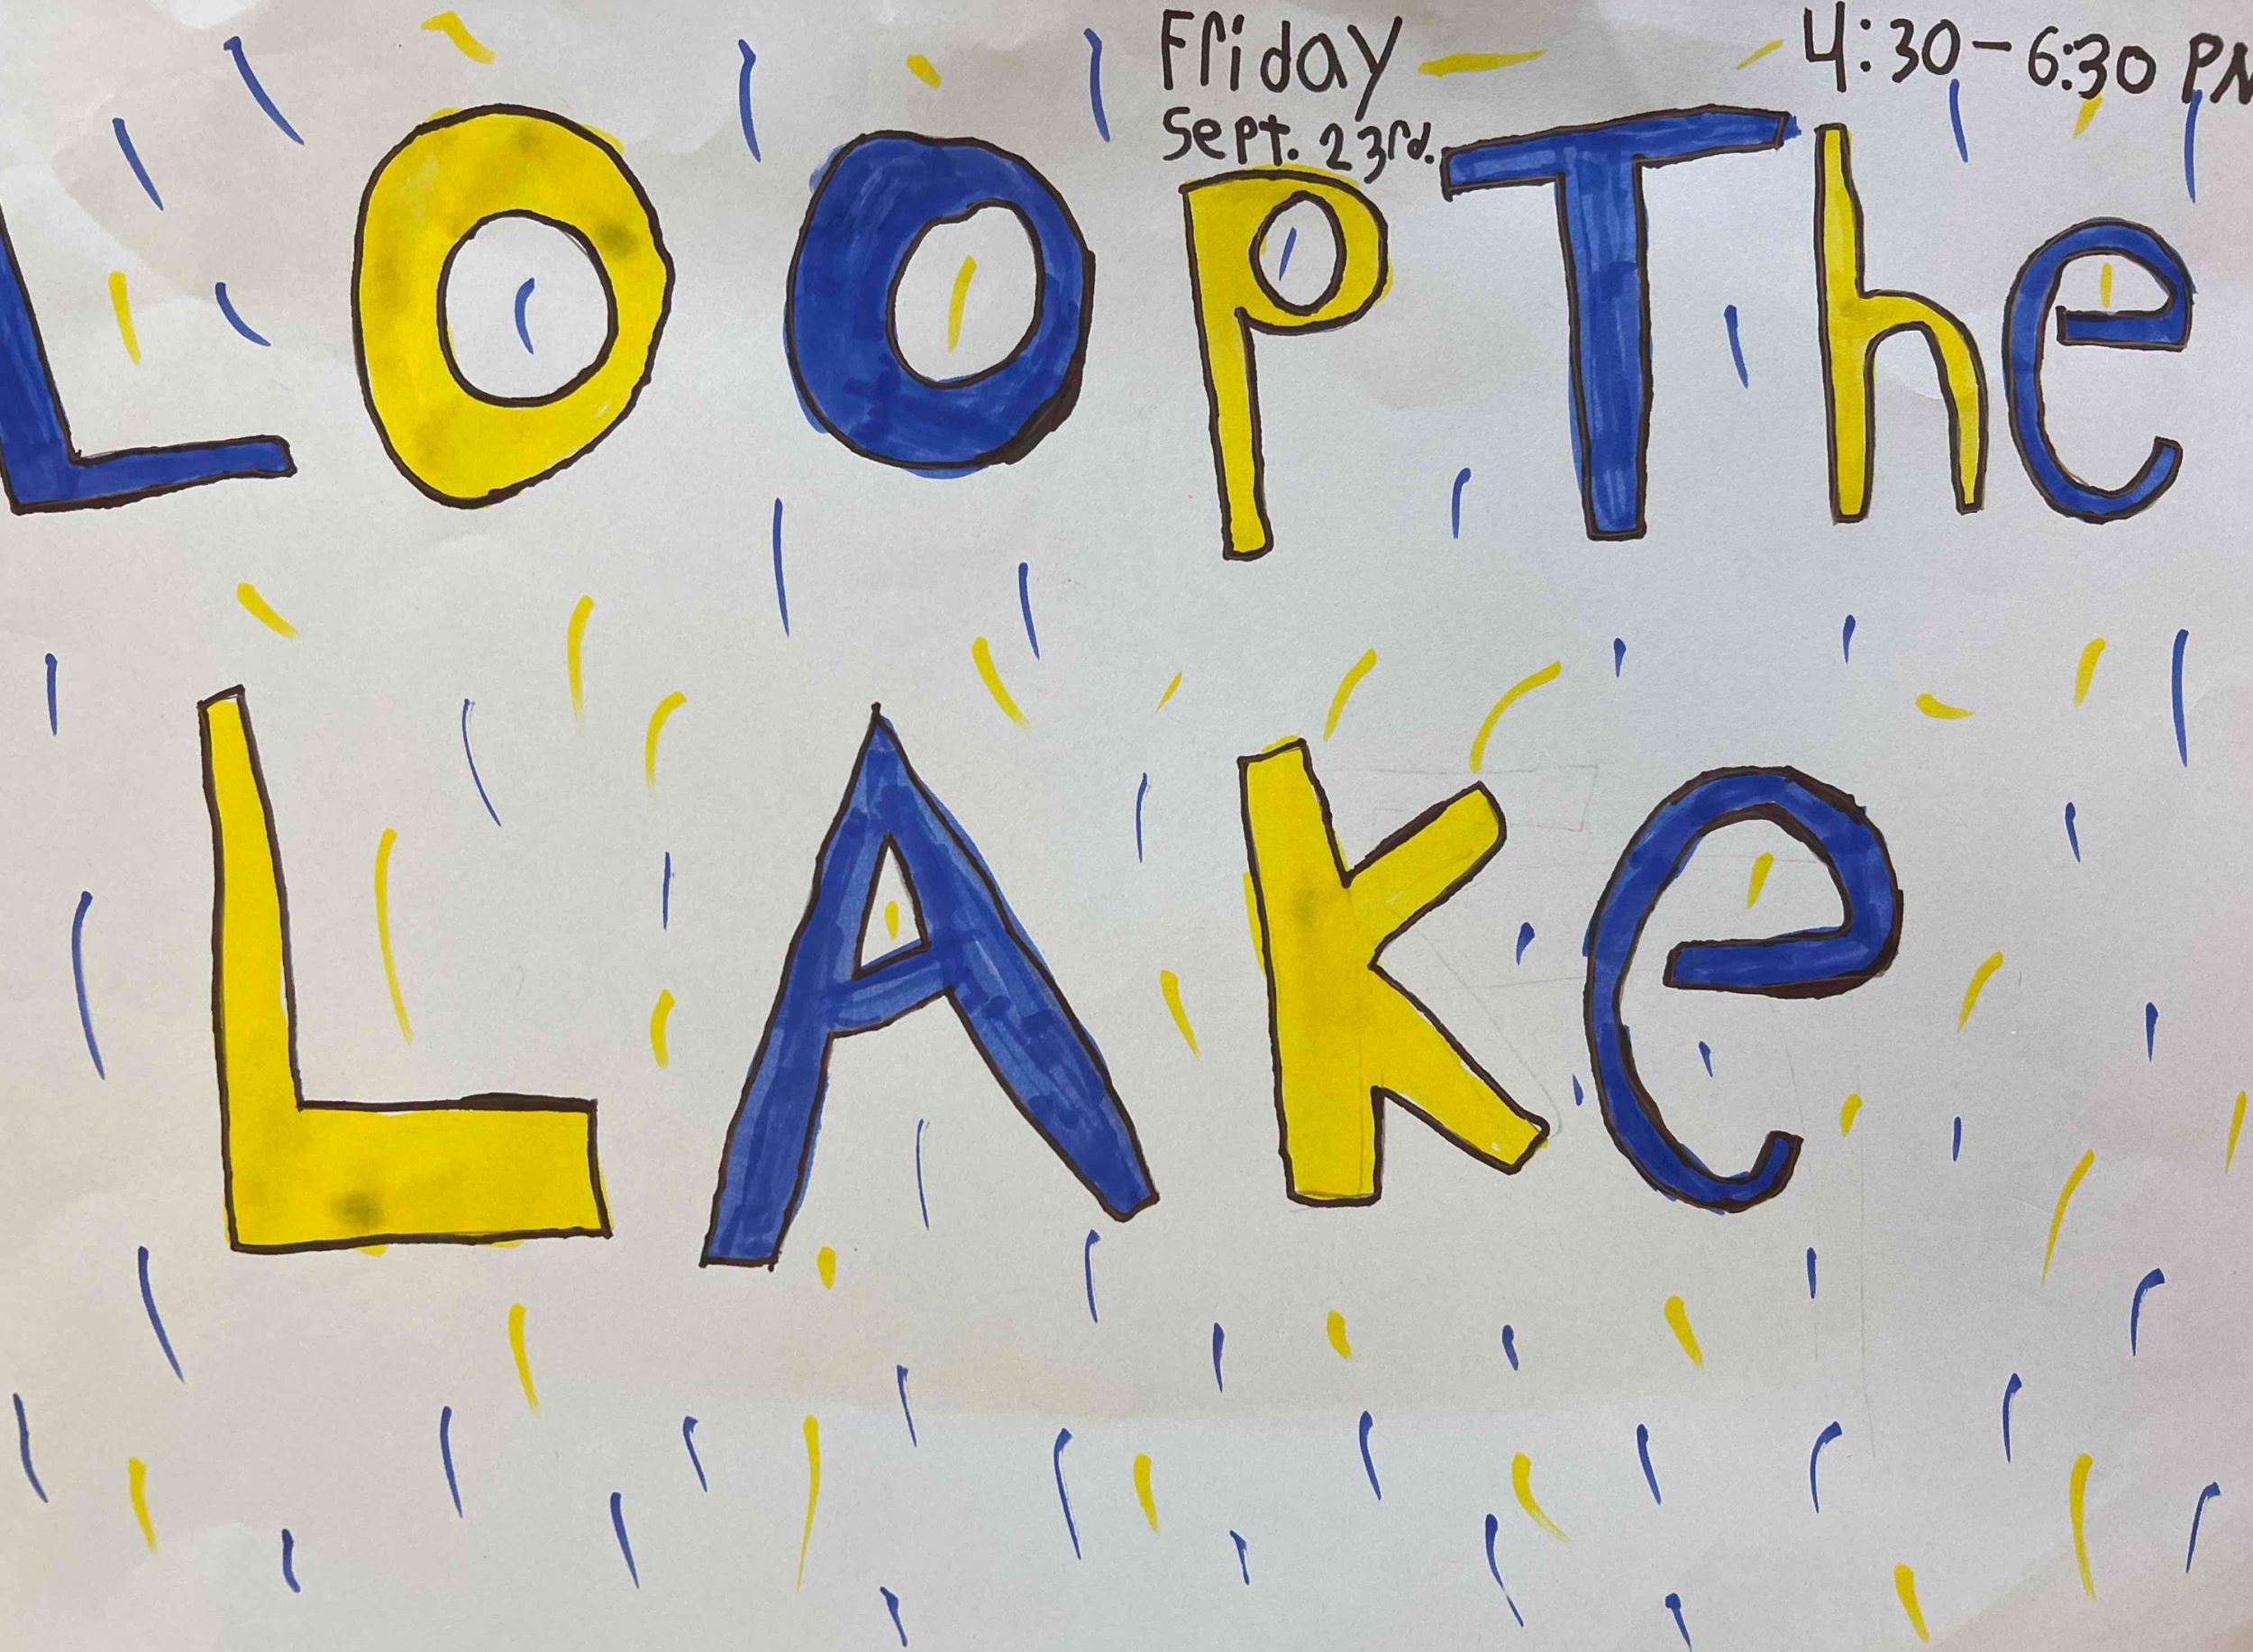 Friday 4:30-6:30 PM
Sept. 23rd.
LOOP The
LAKe